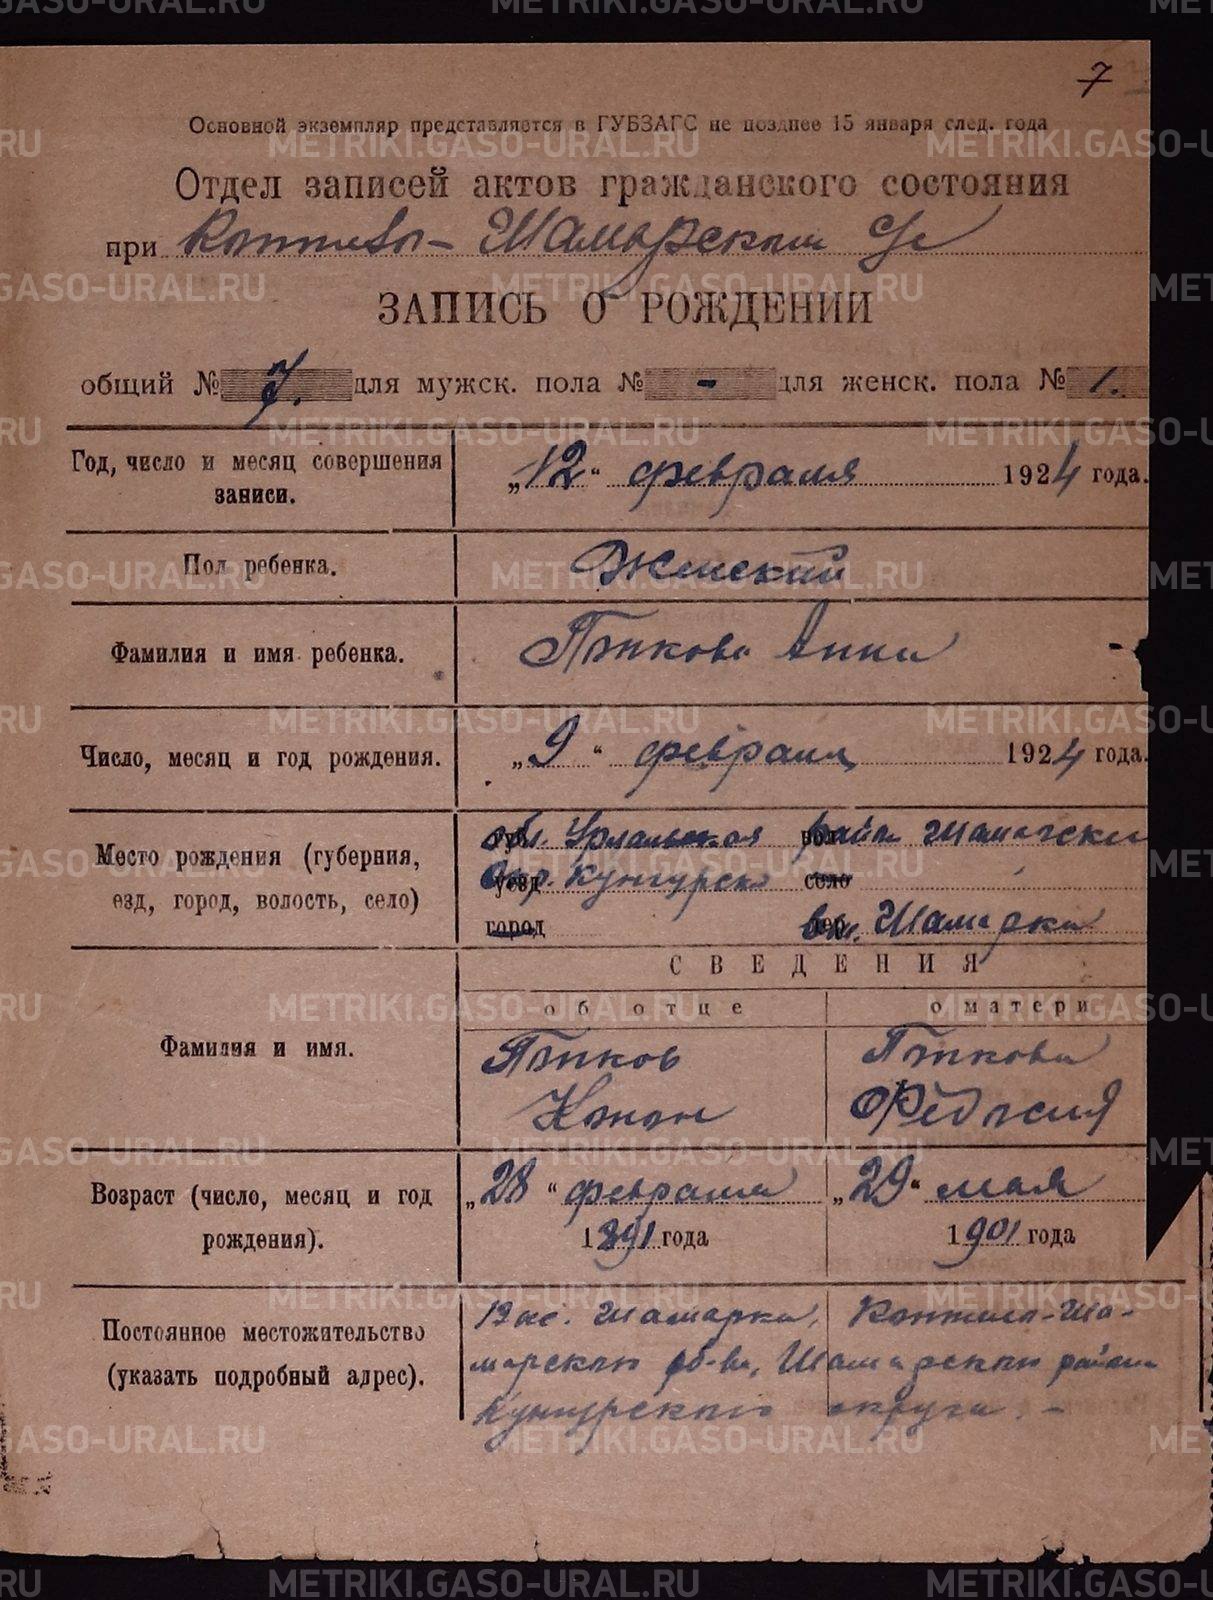 7
Основной экземпляр представляется в ГУБЗАГС не позднее 15 января след. года
Отдел записей актов гражданского состояния
при Шамарском с/с
ЗАПИСЬ О РОЖДЕНИИ
общий № 7. для мужск. пола № - для женск. пола № 1.
Год, число и месяц совершения записи. „12“ февраля 1924 года.
Пол ребенка. Женский
Фамилия и имя ребенка. Пыпкова Анна
Число, месяц и год рождения. „9“ февраля 1924 года.
Место рождения (губерния, обл. Уральская район Шамарски
езд, город, волость, село) Окр. Кунгурск село
город Шамарка
СВЕДЕНИЯ
об отце о матери
Фамилия и имя. Пыпков Пыпкова
Конон Федосия
Возраст (число, месяц и год „28“ февраля „29“ мая
рождения). 1891 года 1901 года
Постоянное местожительство Шамарка,
(указать подробный адрес). марского об-ва, Шамарского района
Кунгурского округа. -
METRIKI.GASO-URAL.RU